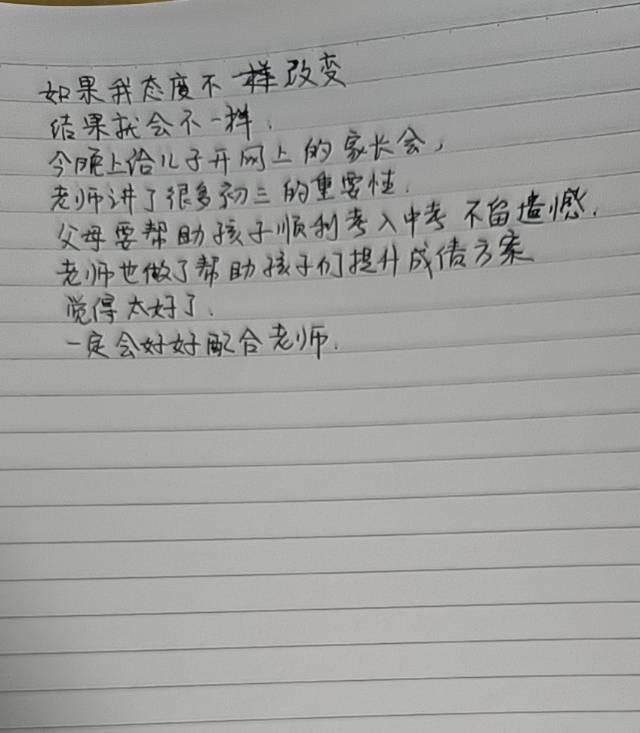 如果我态度不一样改变
结果就会不一样.
今晚上给儿子开网上的家长会,
老师讲了很多初三的重要性.
父母要帮助孩子顺利考入中考 不留遗憾.
老师也做了帮助孩子们提升成绩方案
觉得太好了.
一定会好好配合老师.